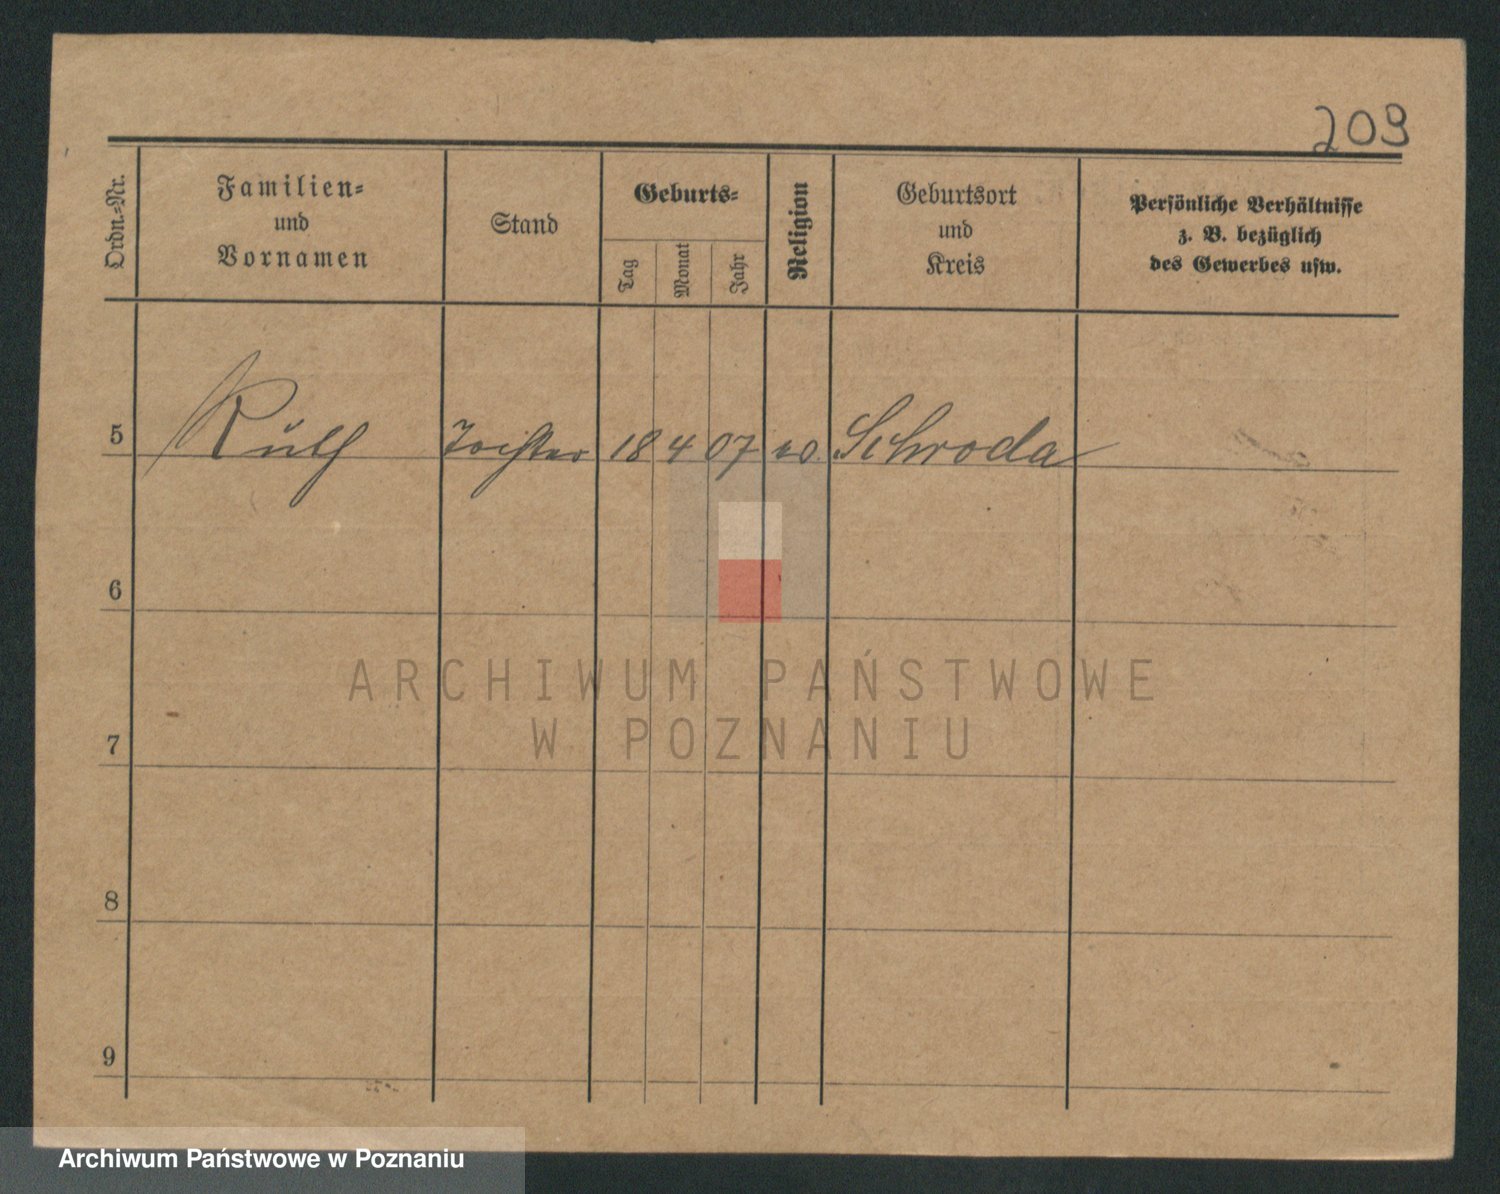 209
Ordn.-Nr.
Familien-
und
Vornamen
Stand
Geburts-
Tag
Monat
Jahr
Religion
Geburtsort
und
Kreis
Persönliche Verhältnisse
z. B. bezüglich
des Gewerbes usw.
5 Ruth Tochter 18 4 07 Schroda
6
ARCHIWUM PAŃSTWOWE
W POZNANIU
7
8
9
Archiwum Państwowe w Poznaniu